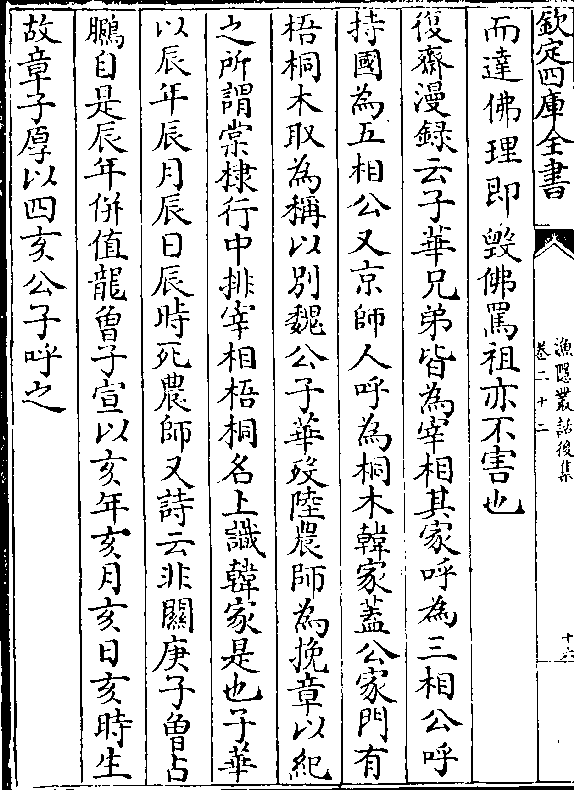 欽定四庫全書
漁隱叢話後集
卷二十二
而達佛理即毀佛罵祖亦不害也
復齋漫録云子華兄弟皆為宰相其家呼為三相公呼
持國為五相公又京師人呼為桐木韓家葢公家門有
梧桐木取為稱以別魏公子華歿陸農師為挽章以紀
之所謂棠棣行中排宰相梧桐名上識韓家是也子華
以辰年辰月辰日辰時死農師又詩云非關庚子曾占
鵩自是辰年併值龍曾子宣以亥年亥月亥日亥時生
故章子厚以四亥公子呼之